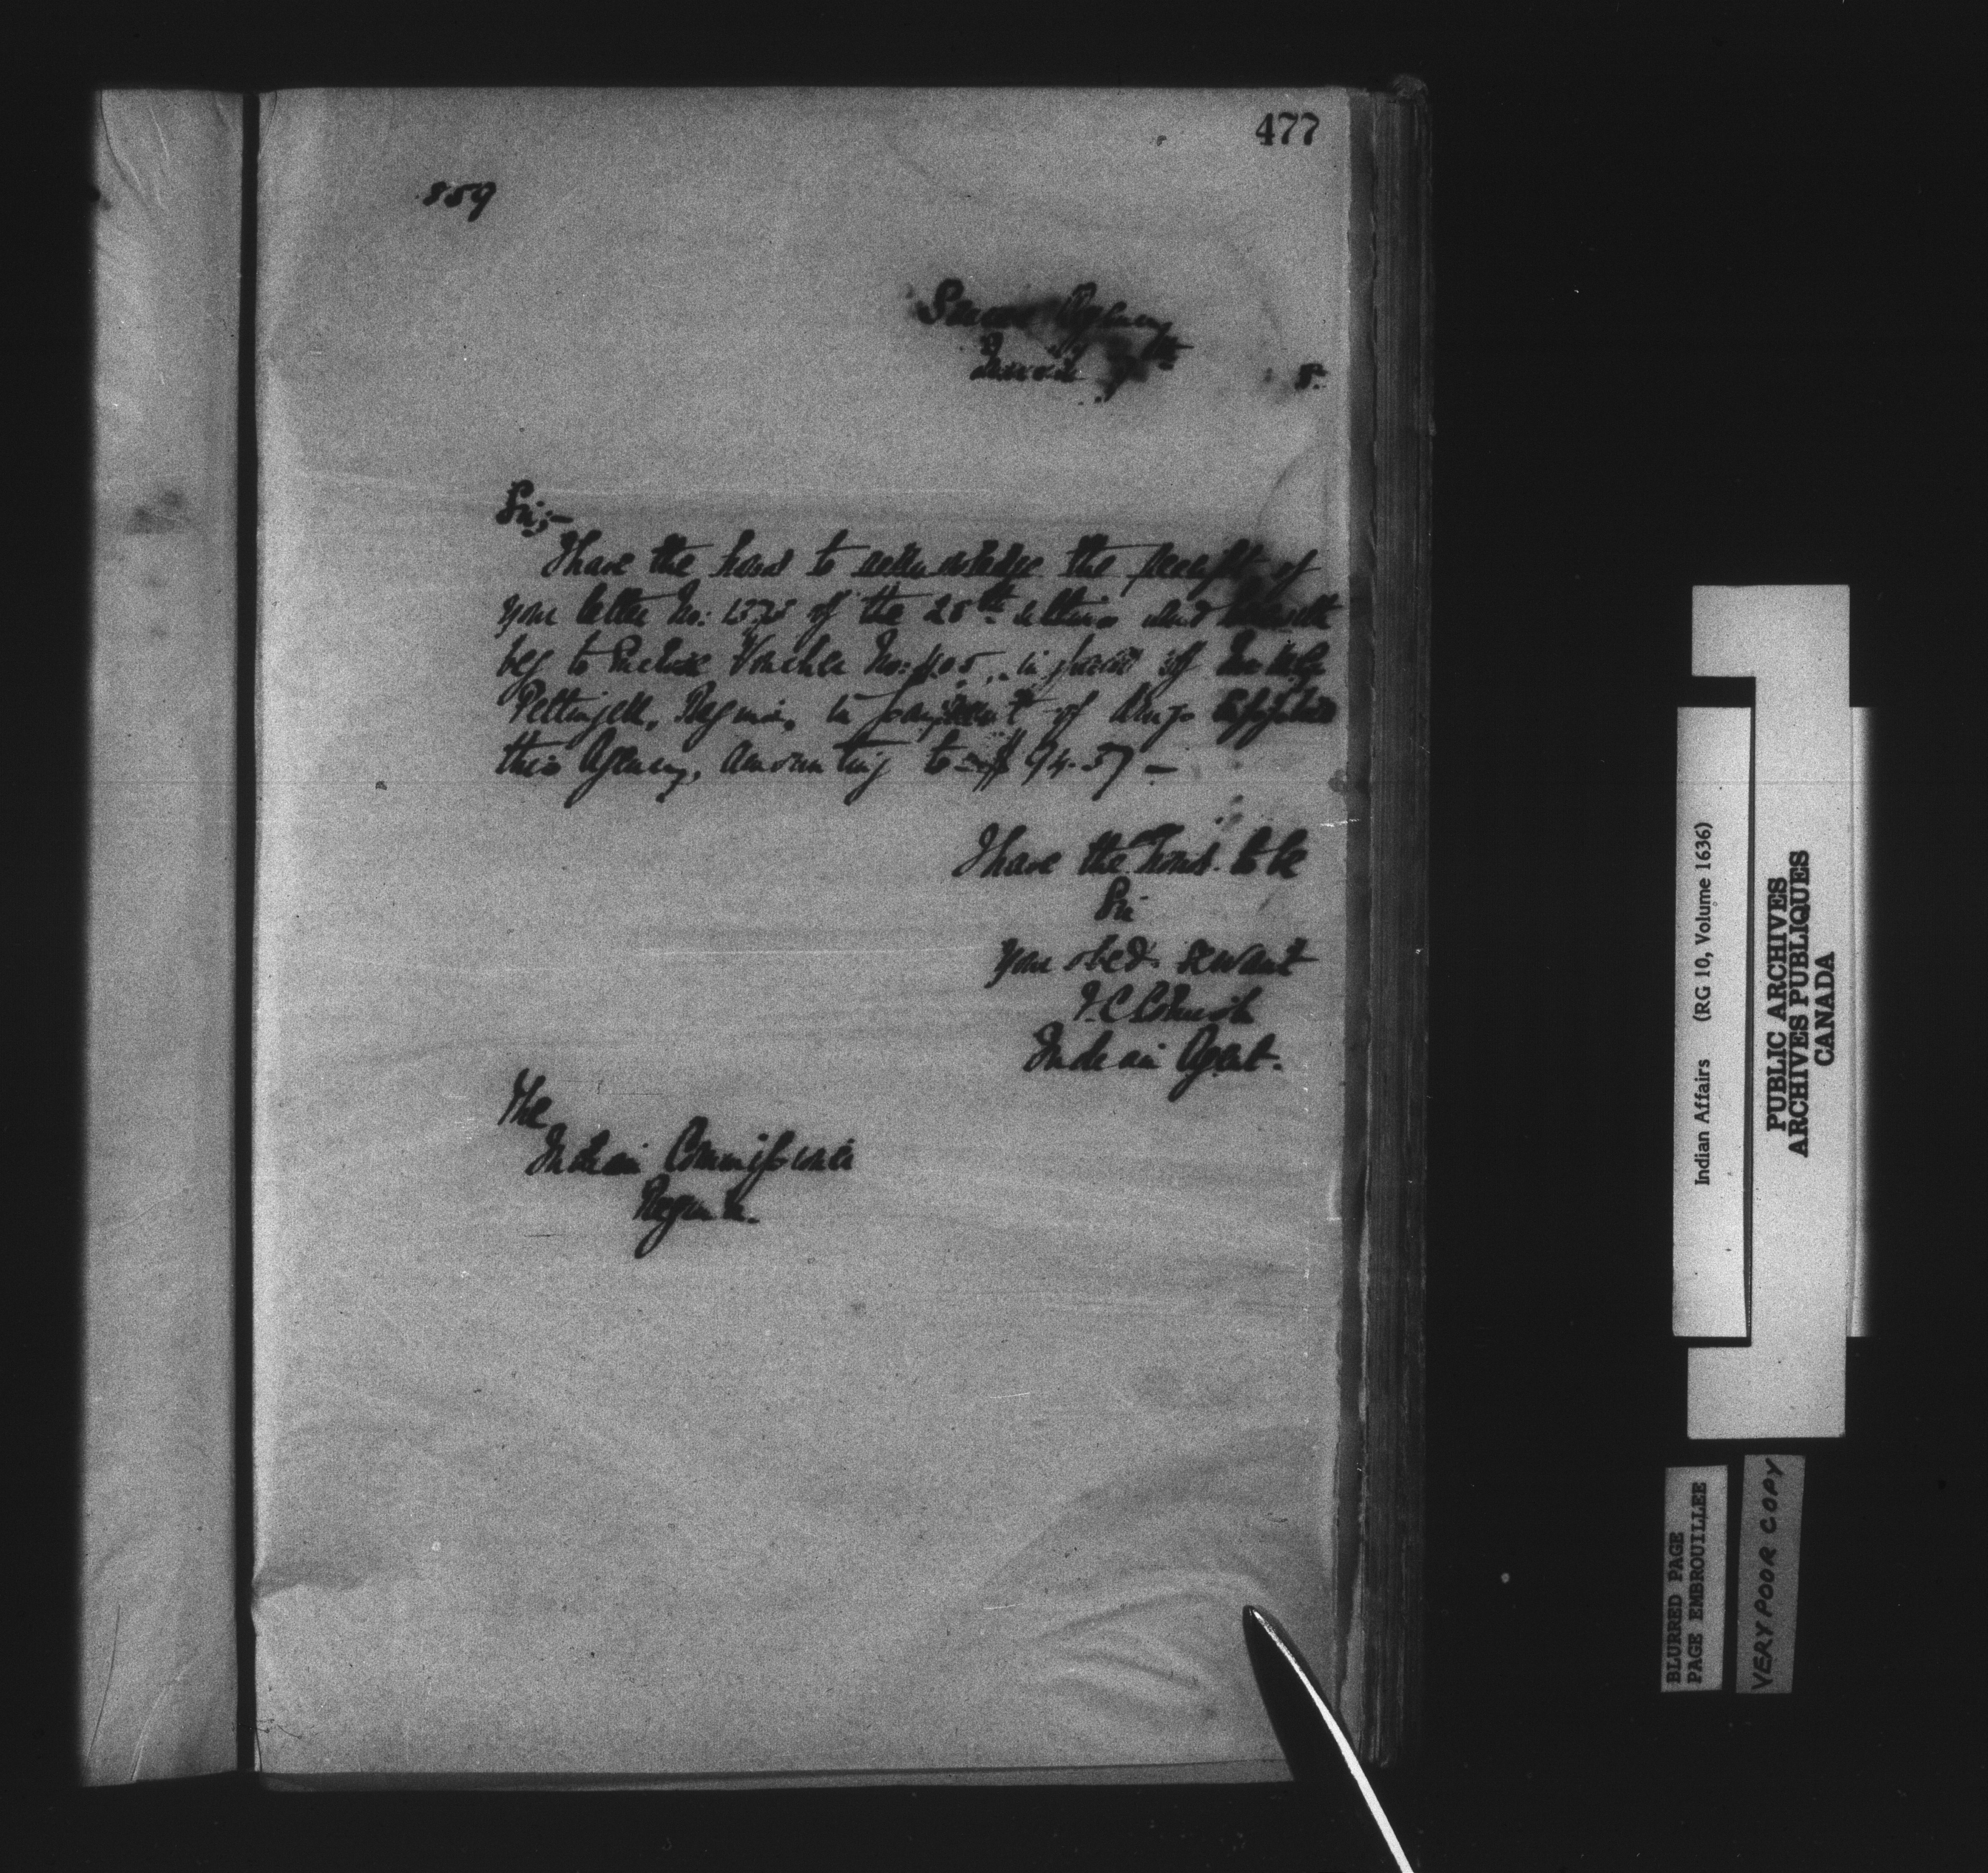 477
859
Agency
8
Sir;-
I have the honor to acknowledge the receipt of
your letter No: of the 28th ultimo and herewith
beg to Enclose Voucher No: in favor of
Pettingell, Regina, in payment of drugs supplied
this Agency, amounting to $ 94.57 —
I have the honor to be
Sir
your obed. servant
Indian Agent.
The
Indian Commissioner
Regina.
Indian Affairs (RG 10, Volume 1636)
PUBLIC ARCHIVES
ARCHIVES PUBLIQUES
CANADA
BLURRED PAGE
PAGE EMBROUILLEE
VERY POOR COPY